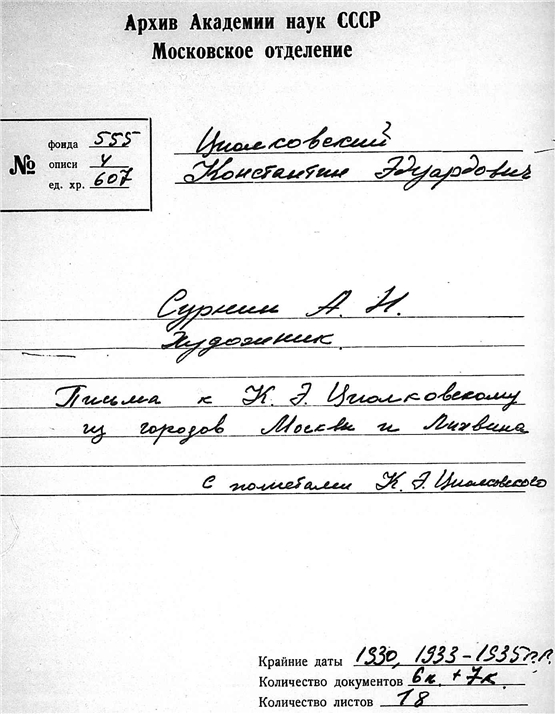 Архив Академии наук СССР
Московское отделение
№
фонда 555
описи 4
ед. хр. 607
Циолковский
Константин Эдуардович
Сурнин А. Н.
Художник
Письма к К. Э. Циолковскому
из городов Москвы и Лихвина
С пометами К. Э. Циолковского
Крайние даты 1930, 1933-1935 г.г.
Количество документов 6п. + 7к.
Количество листов 18